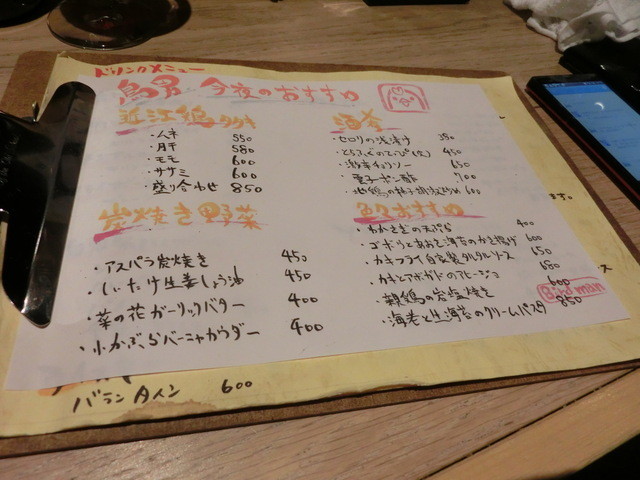 ドリンクメニュー
鳥男 今夜のおすすめ
近江鶏タタキ
・ハネ 550
・肝 580
・モモ 600
・ササミ 600
・盛り合わせ 850
炭焼き野菜
・アスパラ炭焼き 450
・しいたけ生姜しょう油 450
・菜の花ガーリックバター 400
・小かぶらバーニャカウダー 400
酒肴
・セロリの浅漬け 350
・とらふぐのてっぴ(皮) 450
・激辛チョリソー 650
・雲子ポン酢 700
・地鶏の柚子胡椒 600
色々おすすめ
・わかさぎの天ぷら 400
・ゴボウとあおさ海苔のかき揚げ 600
・カキフライ自家製タルタルソース 650
・カキとアボカドのアヒージョ 680
・親鶏の岩塩焼き 600
・海老と生海苔のクリームパスタ 850
Bird man
バランタイン 600
ます。
ス